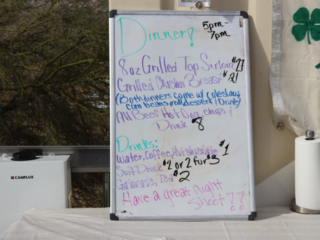 Dinner! 5pm-7pm
8oz Grilled Top Sirloin $13
Grilled Chicken Breast $12
(Both dinners come w/ coleslaw,
corn, beans, roll, dessert & Drink)
All Beef Hot Dog, chips &
Drink 8
Drinks:
Water, Coffee, $1
Soft Drink $2 or 2 for $3
Gatorade, $2
Have a great night
Shoot!!
CAMPLUX